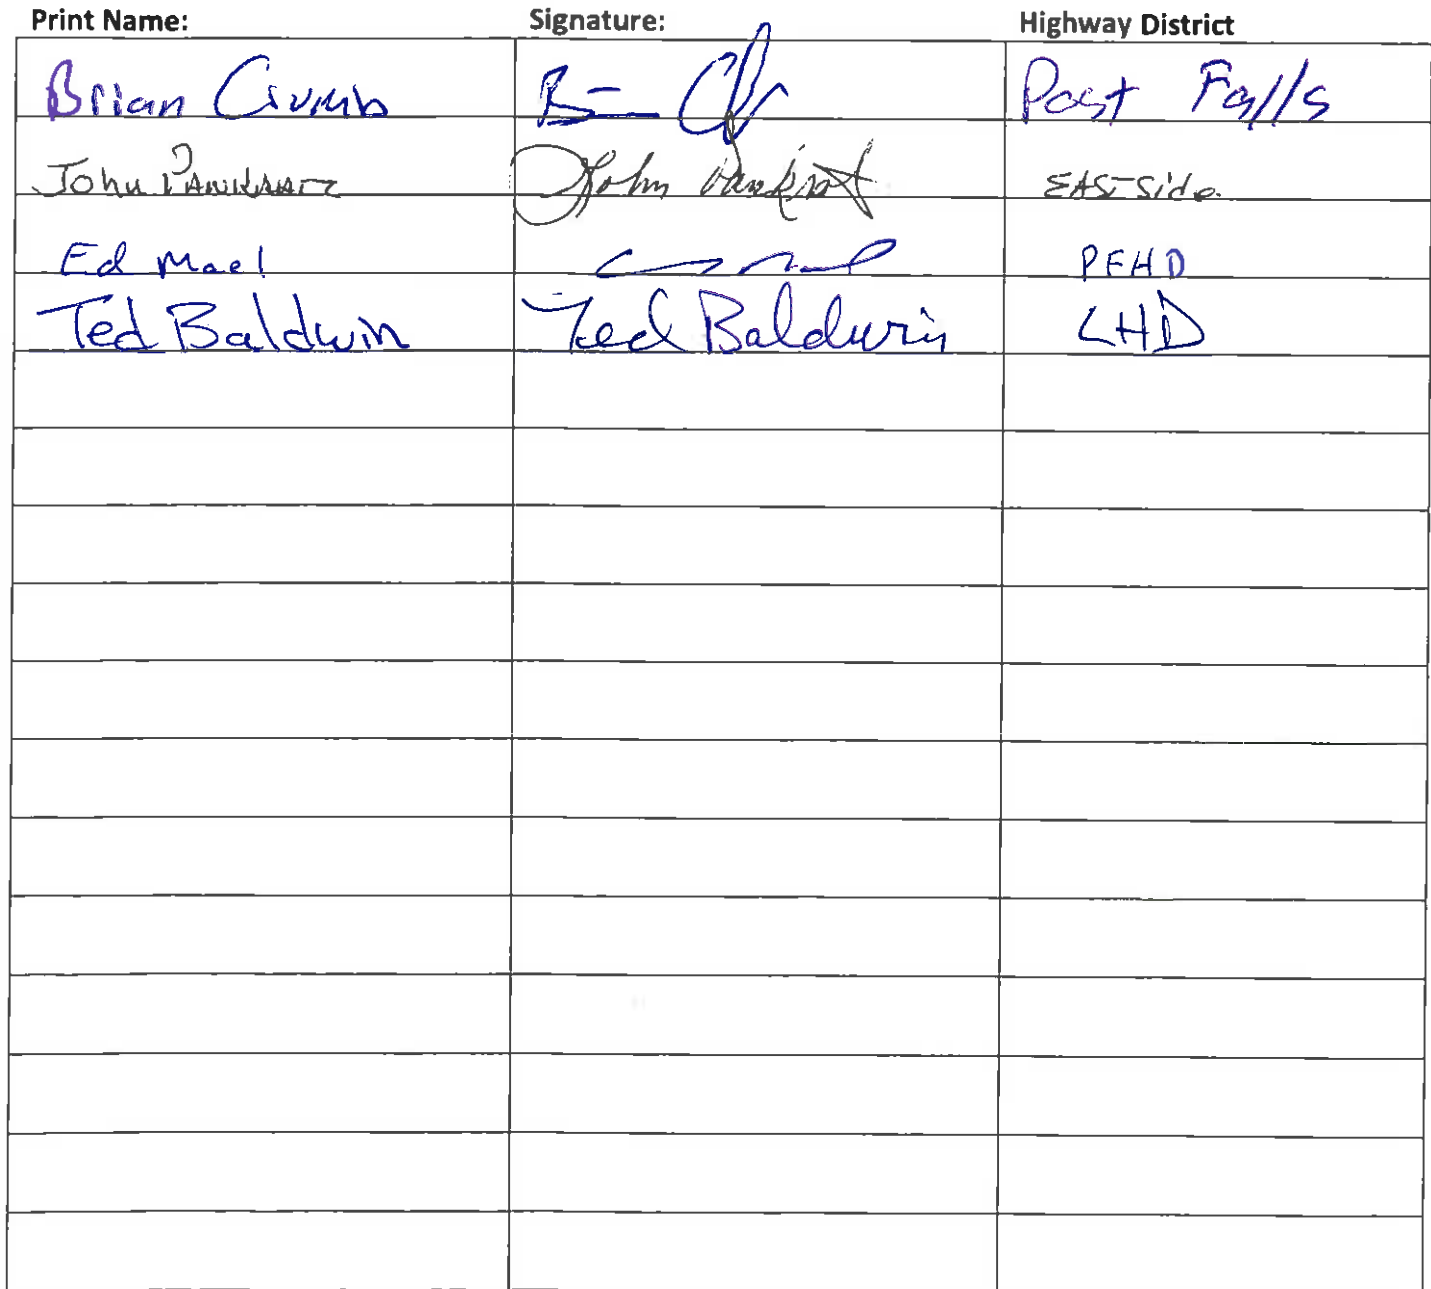 Print Name: Signature: Highway District
Brian Crumb B Post Falls
John Pankratz John Pankratz EAST Side
Ed Mael PFHD
Ted Baldwin Ted Baldwin LHD